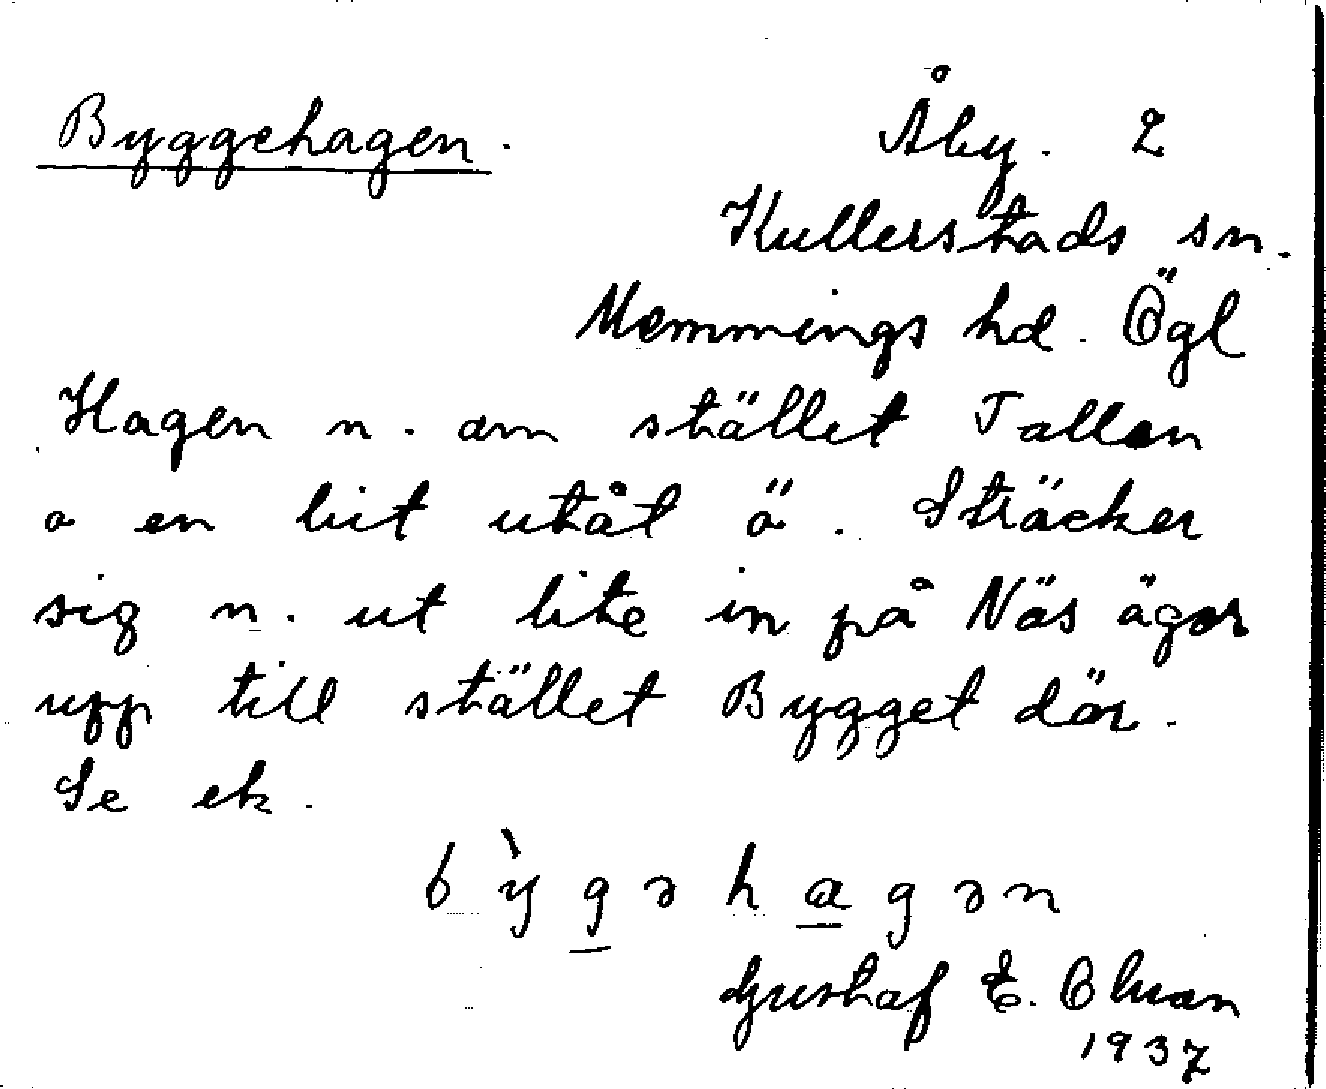 Byggehagen. Åby. 2
Kullerstads sn.
Memmings hd. Ögl
Hagen n. om stället Tallen
o en bit utåt ö. Sträcker
sig n. ut lite in på Näs ägor
upp till stället Bygget där.
Se ek.
b ỳ g ə h a g ə n
Gustaf E. Olsson
1937